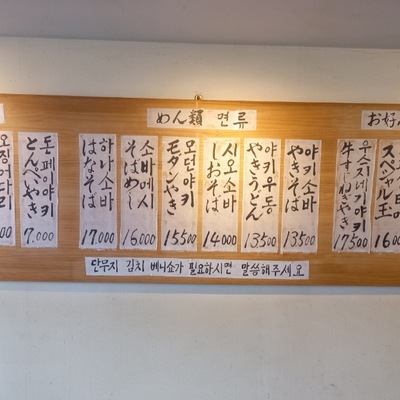 めん類 면류
お好
오징어다리
00
돈페이야키
とんぺいやき
7,000
하나소바
はなそば
17,000
소바메시
そばめし
16,000
모던야키
モダンやき
15,500
시오소바
しおそば
14,000
야키우동
やきうどん
13,500
야키소바
やきそば
13,500
우스지네기야키
牛すじねぎやき
17,500
スペシャル玉
16,0
단무지 김치 베니쇼가 필요하시면 말씀해주세요